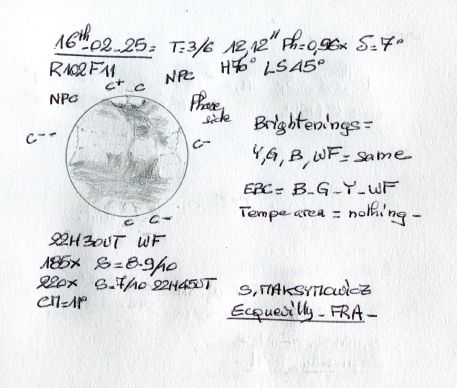 16th-02-25= T=3/6 12,12" Ph=0,96x S=7°
R102F11 NPC H70° LS45°
NPC C+ C Phase side
C-- C-
Brightenings=
Y,G,B,WF= same
EBC= B-G-Y-WF
Tempe area = nothing -
C C-
22H30UT WF
185x S=8-9/10
220x S=7/10 22H45UT
CM=11°
S,MAKSYMOWICZ
Ecquevilly-FRA-